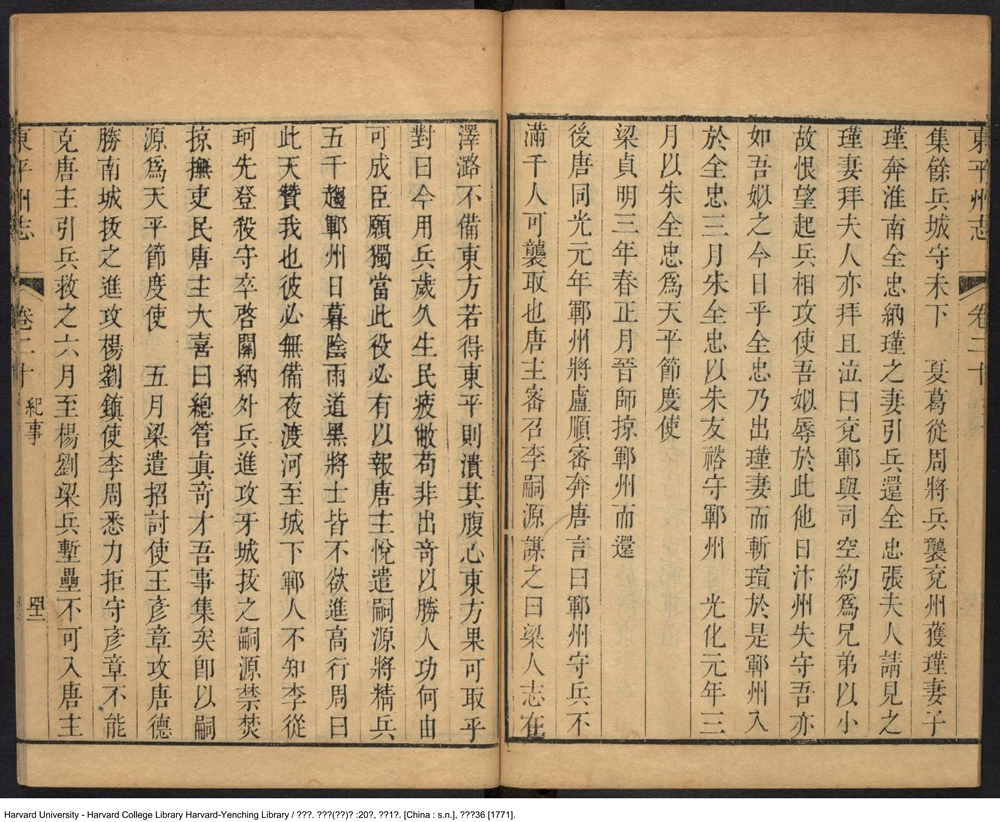 東平州志 卷二十
集餘兵城守未下 夏葛從周將兵襲兗州獲瑾妻子
瑾奔淮南全忠納瑾之妻引兵還全忠張夫人請見之
瑾妻拜夫人亦拜且泣曰兗鄆與司空約爲兄弟以小
故恨望起兵相攻使吾姒辱於此他日汴州失守吾亦
如吾姒之今日乎全忠乃出瑾妻而斬瑄於是鄆州入
於全忠三月朱全忠以朱友裕守鄆州 光化元年三
月以朱全忠爲天平節度使
梁貞明三年春正月晉師掠鄆州而還
後唐同光元年鄆州將盧順密奔唐言曰鄆州守兵不
滿千人可襲取也唐主密召李嗣源謀之曰梁人志在
澤潞不備東方若得東平則潰其腹心東方果可取乎
對曰今用兵歲久生民疲敝苟非出奇以勝人功何由
可成臣願獨當此役必有以報唐主悅遣嗣源將精兵
五千趨鄆州日暮陰雨道黑將士皆不欲進高行周曰
此天贊我也彼必無備夜渡河至城下鄆人不知李從
珂先登殺守卒啓關納外兵進攻牙城拔之嗣源禁焚
掠撫吏民唐主大喜曰總管眞奇才吾事集矣卽以嗣
源爲天平節度使 五月梁遣招討使王彥章攻唐德
勝南城拔之進攻楊劉鎮使李周悉力拒守彥章不能
克唐主引兵救之六月至楊劉梁兵塹壘不可入唐主
東平州志 卷二十 紀事
Harvard University - Harvard College Library Harvard-Yenching Library / ???. ???(??)? :20?, ??1?. [China : s.n.], ???36 [1771].